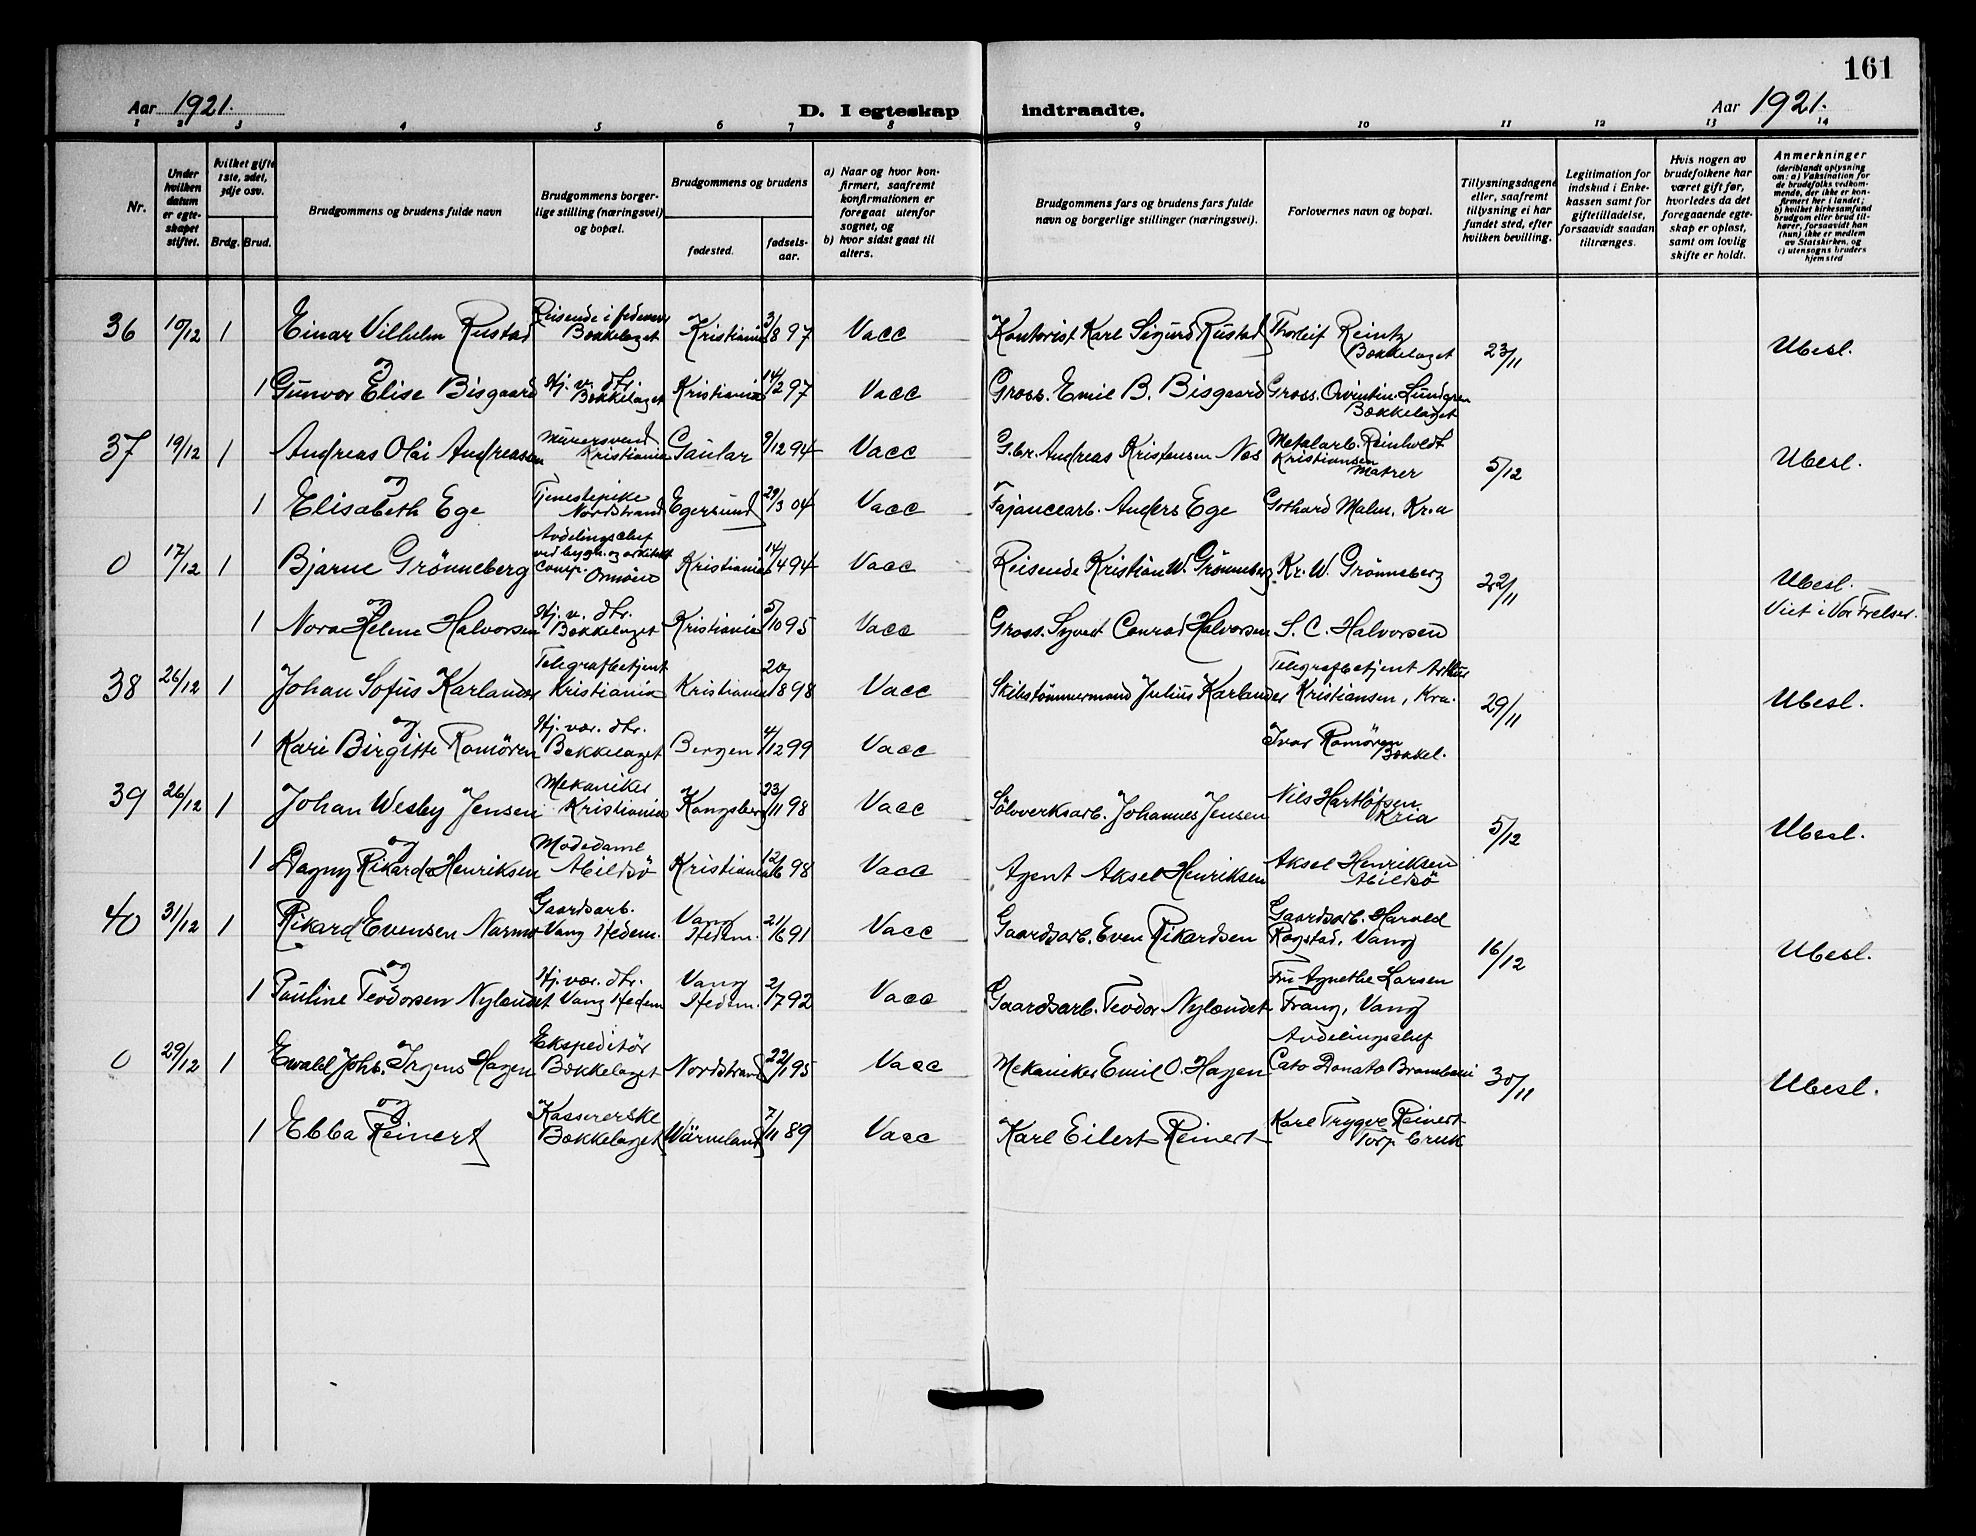 161
Aar 1921.
D. I egteskap indtraadte.
Aar 1921.
1 2 3 4 5 6 7 8 9 10 11 12 13 14
Nr.
Under hvilken datum er egteskapet stiftet.
hvilket gifte 1ste, 2det, 3dje osv.
Brdg. Brud.
Brudgommens og brudens fulde navn
Brudgommens borgerlige stilling (næringsvei) og bopæl.
Brudgommens og brudens
fødested.
fødselsaar.
a) Naar og hvor konfirmert, saafremt konfirmationen er foregaat utenfor sognet, og
b) hvor sidst gaat til alters.
Brudgommens fars og brudens fars fulde navn og borgerlige stillinger (næringsvei).
Forlovernes navn og bopæl.
Tillysningsdagene eller, saafremt tillysning ei har fundet sted, efter hvilken bevilling.
Legitimation for indskud i Enkekassen samt for giftetilladelse, forsaavidt saadan tiltrænges.
Hvis nogen av brudefolkene har været gift før, hvorledes da det foregaaende egteskap er opløst, samt om lovlig skifte er holdt.
Anmerkninger
(deriblandt oplysning om: a) Vaksination for de brudefolks vedkommende, der ikke er konfirmert her i landet; b) hvilket kirkesamfund brudgom eller brud tilhører, forsaavidt han (hun) ikke er medlem av Statskirken, og c) utensogns bruders hjemsted
36 10/12 1 Einar Vilhelm Rustad Reisende i Bækkelaget Kristiania 3/8 97 Vacc Kontorist Karl Sigurd Rustad Thorleif Reintz Bækkelaget 23/11 Ubesl.
og
1 Gunvor Elise Bisgaard Hj. v. dtr. Bækkelaget Kristiania 14/2 97 Vacc Gross. Emil B. Bisgaard Gross. Lundgren Bækkelaget
37 19/12 1 Andreas Olai Andreasen Murersvend Kristiania Gaular 9/12 94 Vacc G.br. Andreas Kristensen Nes Metalarb. Reinholdt Kristiansen 5/12 Ubesl.
og
1 Elisabeth Ege Tjenestepike Nordstrand Egersund 29/3 04 Vacc Fajancearb. Anders Ege Gothard Malm, Kr.a
0 17/12 1 Bjarne Grönneberg Avdelingschef ved bygn. og arkitekt comp. Ormöen Kristiania 14/4 94 Vacc Reisende Kristian W. Grönneberg Kr. W. Grönneberg 22/11 Ubesl.
Viet i Vor Frelser.
og
1 Nora Helene Halvorsen Hj. v. dtr. Bækkelaget Kristiania 5/10 95 Vacc Gross. Syvert Conrad Halvorsen S. C. Halvorsen
38 26/12 1 Johan Sofus Karlander Telegrafbetjent Kristiania Kristiania 20/8 98 Vacc Skibstömmermand Julius Karlander Telegrafbetjent Arthur Kristiansen, Kra. 29/11 Ubesl.
og
1 Kari Birgitte Romören Hj. vær. dtr. Bækkelaget Bergen 4/12 99 Vacc Ivar Romören Bækkel.
39 26/12 1 Johan Wesley Jensen Mekaniker Kristiania Kongsberg 23/11 98 Vacc Sölvverksarb. Johannes Jensen Nils Kria 5/12 Ubesl.
og
1 Dagny Rikarda Henriksen Modedame Abildsö Kristiania 12/6 98 Vacc Agent Aksel Henriksen Aksel Henriksen Abildsö
40 31/12 1 Rikard Evensen Narmo Gaardsarb. Vang Hedem. Vang Hedem. 21/6 91 Vacc Gaardsarb. Even Rikardsen Gaardsarb. Harald Rogstad, Vang 16/12 Ubesl.
og
1 Pauline Teodorsen Nylændet Hj. vær. dtr. Vang Hedem Vang Hedem. 2/7 92 Vacc Gaardsarb. Teodor Nylændet Fru Agnethe Larsen Frang, Vang
0 29/12 1 Ewald Johs. Irgens Hagen Ekspeditör Bækkelaget Nordstrand 22/1 95 Vacc Mekaniker Emil O. Hagen Avdelingschef Cato Donato Brambani 30/11 Ubesl.
og
1 Ebba Reinert Kassererske Bækkelaget Wärmeland 7/11 89 Vacc Karl Eilert Reinert Kare Trygve Reinert Torp bruk